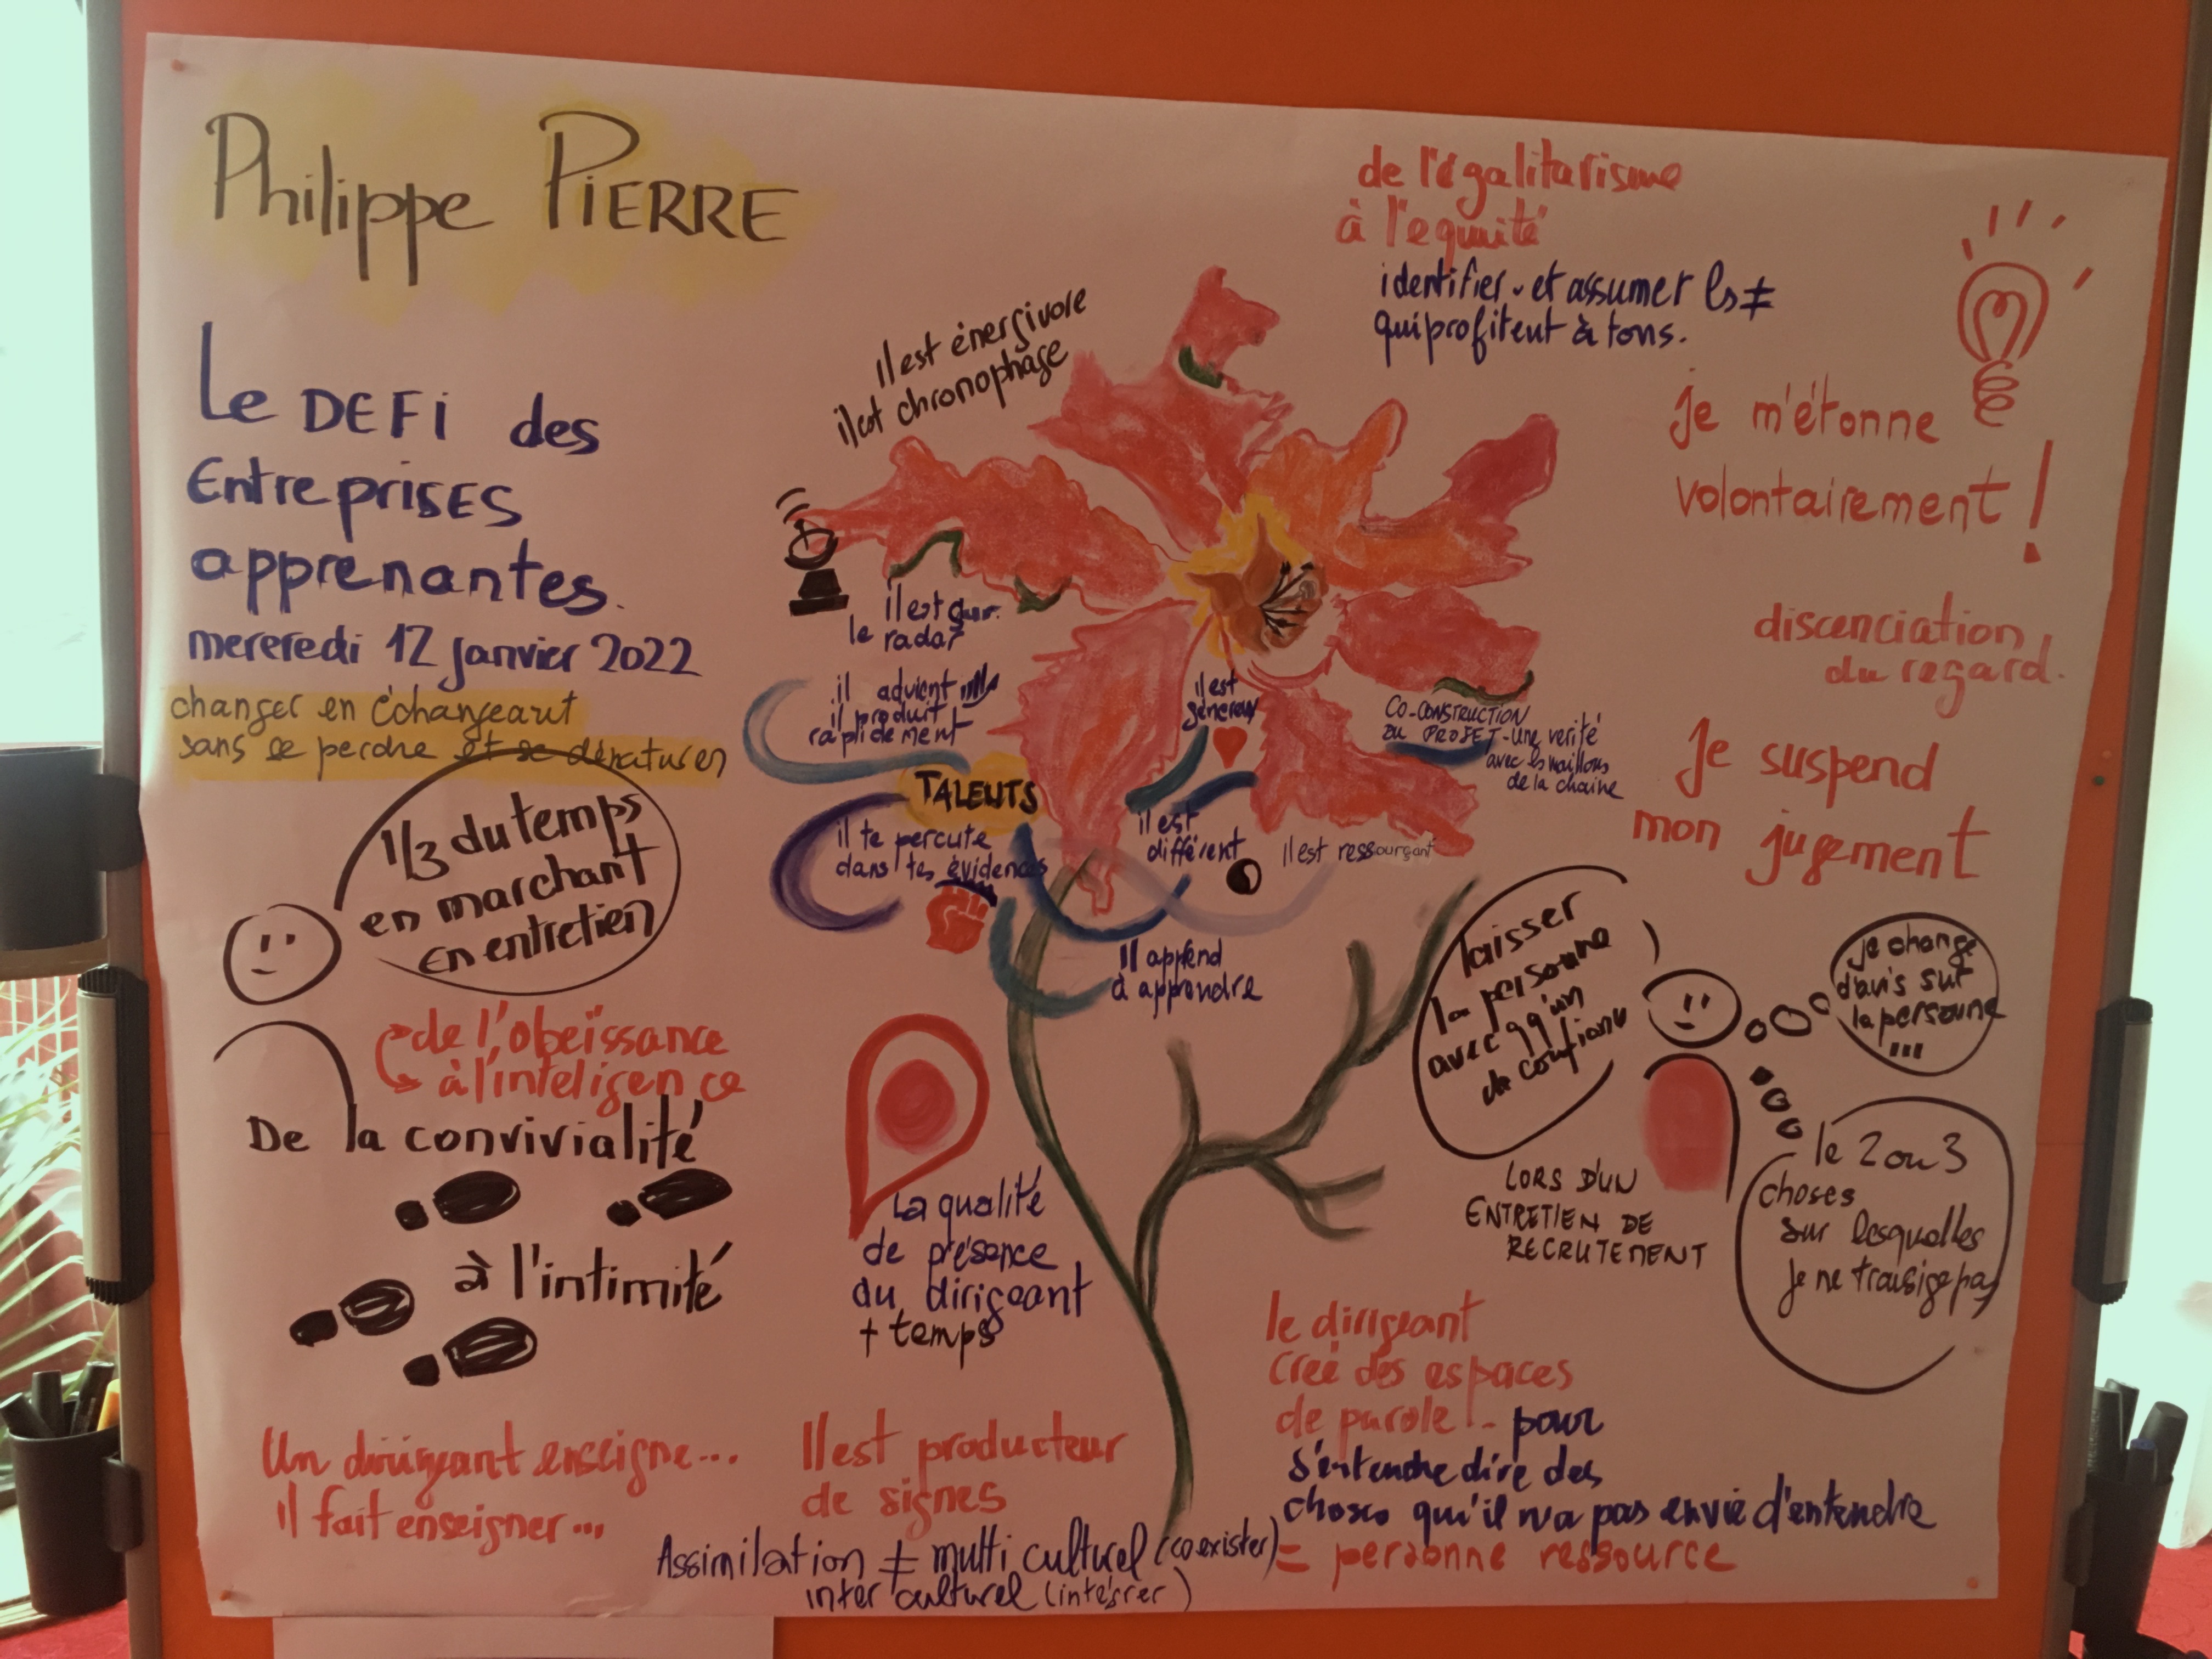 Philippe PIERRE
Le DEFi des
Entreprises
apprenantes.
mereredi 12 janvier 2022
changer en échangeant
sans se perdre et se dénaturer
1/3 du temps
en marchant
en entretien
de l'obeïssance
à l'inteligence
De la convivialité
à l'intimité
Un dirigeant enseigne...
il fait enseigner...
il est énergivore
il est chronophage
il est sur
le radar
il advient
il produit
rapidement
TALENTS
il te percute
dans tes évidences
il est
généreux
il est
différent
Il est ressourçant
Il apprend
à apprendre
CO-CONSTRUCTION
DU PROJET - une verité
avec les maillons
de la chaine
La qualité
de présence
du dirigeant
+ temps
Il est producteur
de signes
Assimilation ≠ multi culturel (coexister)
inter culturel (intégrer)
de l'égalitarisme
à l'equité
identifier et assumer les ≠
qui profitent à tous.
je m'étonne
volontairement !
discenciation
du regard.
Je suspend
mon jugement
laisser
la personne
avec qq'un
de confiance
je change
d'avis sur
la personne
...
LORS D'UN
ENTRETIEN DE
RECRUTEMENT
le 2 ou 3
choses
sur lesquelles
je ne transige pas
le dirigeant
creé des espaces
de parole !.. pour
s'entendre dire des
choses qu'il n'a pas envie d'entendre
= personne ressource